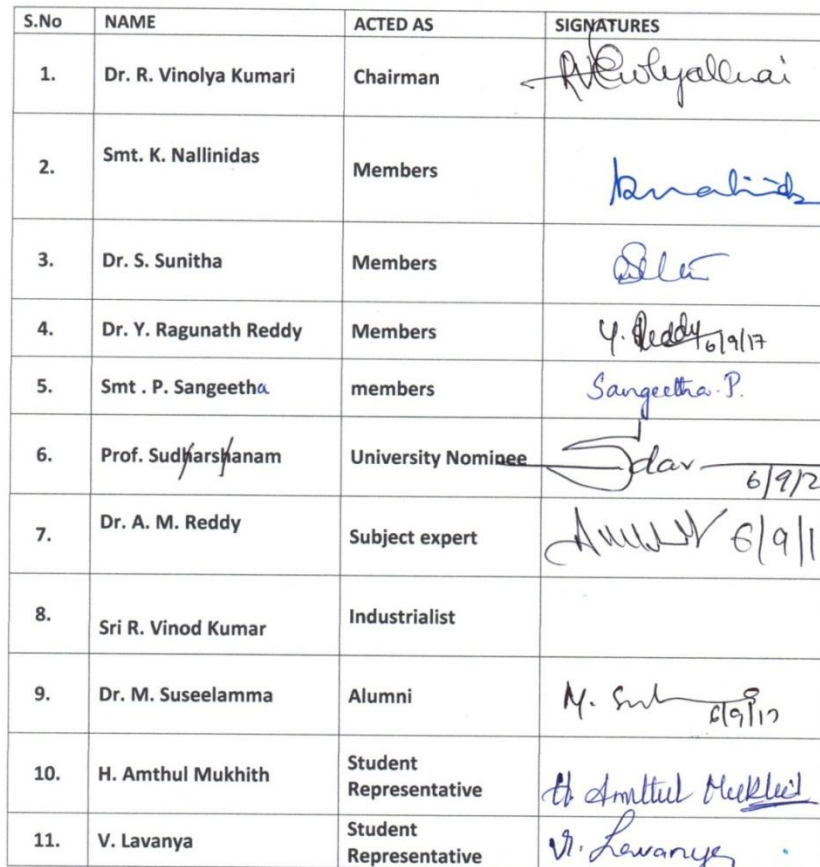 S.No NAME ACTED AS SIGNATURES
1. Dr. R. Vinolya Kumari Chairman
2. Smt. K. Nallinidas Members
3. Dr. S. Sunitha Members
4. Dr. Y. Ragunath Reddy Members Y. Reddy 6/9/17
5. Smt . P. Sangeetha members Sangeetha. P.
6. Prof. Sudharshanam University Nominee 6/9/2
7. Dr. A. M. Reddy Subject expert 6/9/1
8. Sri R. Vinod Kumar Industrialist
9. Dr. M. Suseelamma Alumni M. 6/9/17
10. H. Amthul Mukhith Student
Representative H. Amthul Mukhid
11. V. Lavanya Student
Representative V. Lavanya